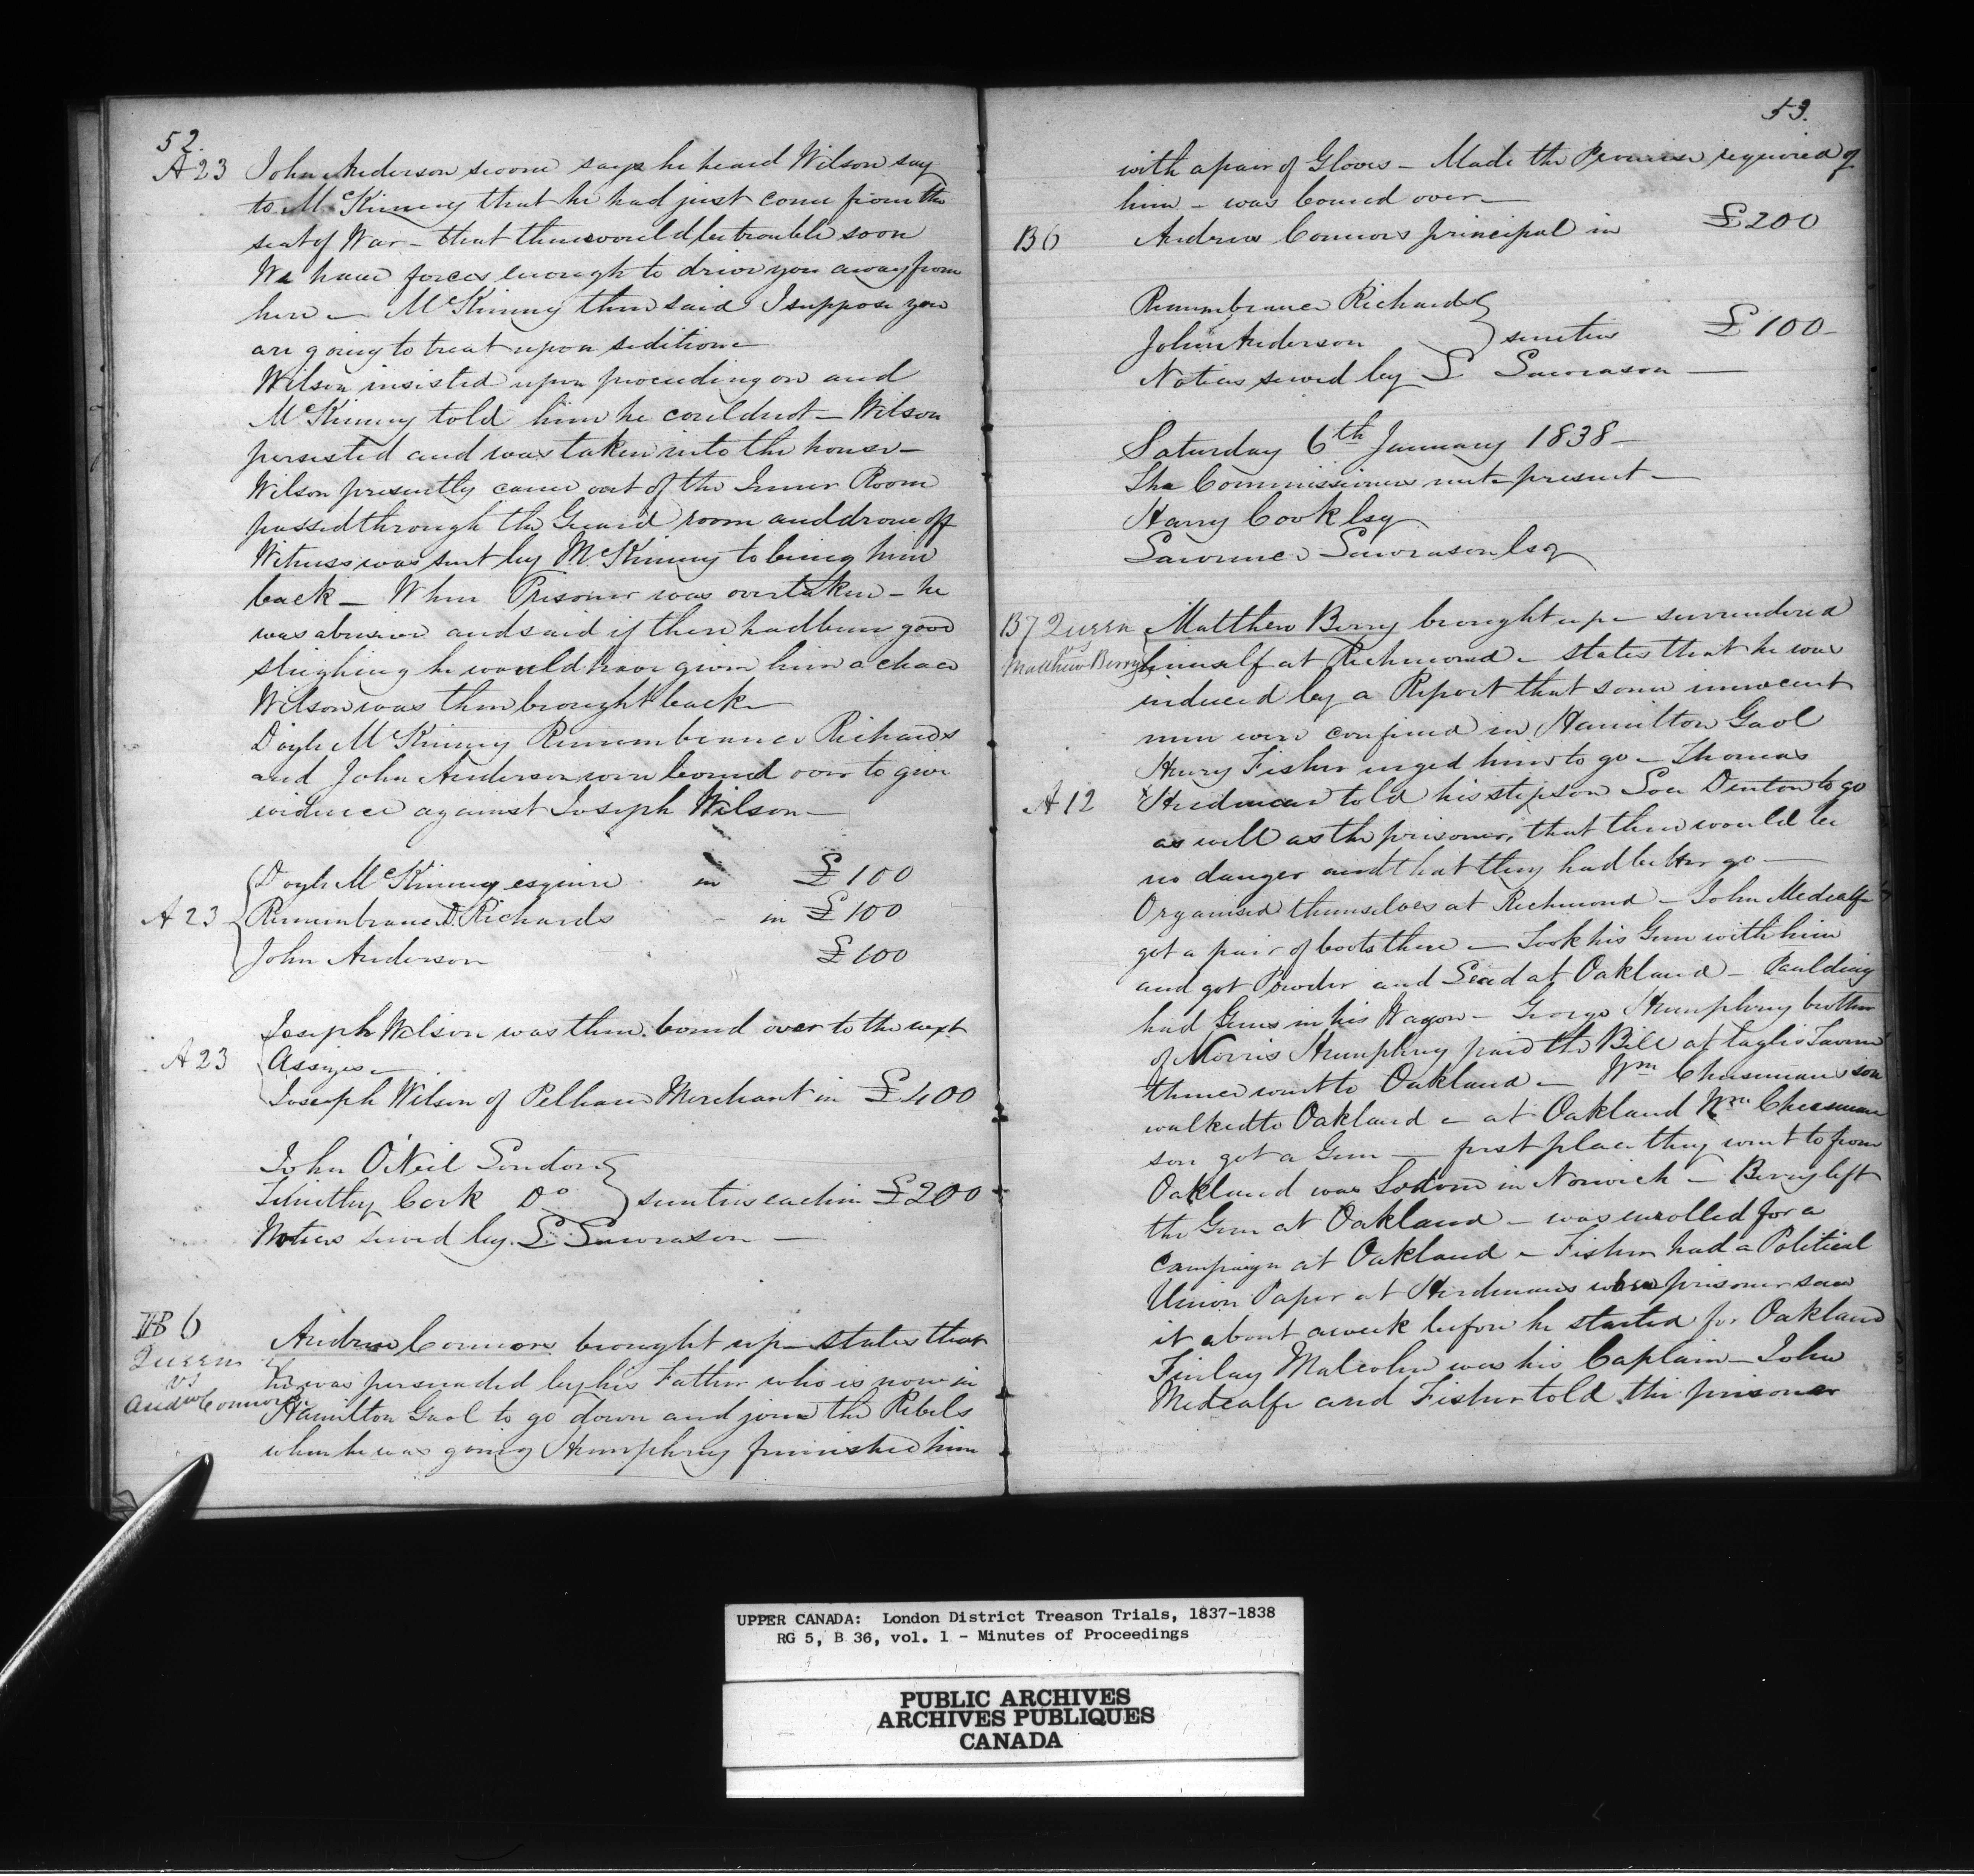 52.
A 23 John Anderson sworn says he heard Wilson say
to McKinney that he had just come from the
seat of War – that there would be trouble soon
We have forces enough to drive you away from
here – McKinney then said I suppose you
are going to treat upon sedition –
Wilson insisted upon proceeding on and
McKinney told him he could not – Wilson
persisted and was taken into the house –
Wilson presently came out of the Inner Room
passed through the Guard room and drove off
Witness was sent by McKinney to bring him
back – When Prisoner was overtaken – he
was abusive and said if there had been good
sleighing he would have given him a chace
Wilson was then brought back –
Doyle McKinney Remembrance Richards
and John Anderson were bound over to give
evidence against Joseph Wilson –
Doyle McKinney esquire in £100
A 23 Remembrance D. Richards - in £100
John Anderson £100
Joseph Wilson was then bound over to the next
A 23 Assizes –
Joseph Wilson of Pelham Merchant in £400
John O'Neil London
Timothy Cook Do sureties each in £200
Notices served by L Lawrason –
B 6
Andrew Connors brought up – states that
Queen
vs
Andw Connors
he was persuaded by his Father who is now in
Hamilton Gaol to go down and join the Rebels
when he was going Humphrey furnished him
53.
with a pair of Gloves – Made the Promise required of
him – was bound over –
B 6 Andrew Connors principal in £200
Remembrance Richards
John Anderson sureties £100 –
Notices served by L Lawrason –
Saturday 6th January 1838 –
The Commissioners met – present –
Harry Cook Esq
Lawrence Lawrason Esq
B 7 Queen
vs
Matthew Berry
Matthew Berry brought up – surrendered
himself at Richmond – states that he was
induced by a Report that some innocent
men were confined in Hamilton Gaol
Henry Fisher urged him to go – Thomas
A 12 Herdman told his stepson Denton to go
as well as the prisoner, that there would be
no danger and that they had better go –
Organised themselves at Richmond – John Medcalfe
got a pair of boots there – Took his Gun with him
and got Powder and Lead at Oakland – Paulding
had Guns in his Wagon – George Humphrey brother
of Morris Humphrey paid the Bill at Tavern
thence went to Oakland – Wm Cheeseman's son
walked to Oakland – at Oakland Wm Cheeseman
son got a Gun – first place they went to from
Oakland was Sodom in Norwich – Berry left
the Gun at Oakland – was enrolled for a
Campaign at Oakland – Fisher had a Political
Union Paper at Herdmans where prisoner saw
it about a week before he started for Oakland
Finlay Malcolm was his Captain – John
Medcalfe and Fisher told the prisoner
UPPER CANADA: London District Treason Trials, 1837-1838
RG 5, B 36, vol. 1 - Minutes of Proceedings
PUBLIC ARCHIVES
ARCHIVES PUBLIQUES
CANADA